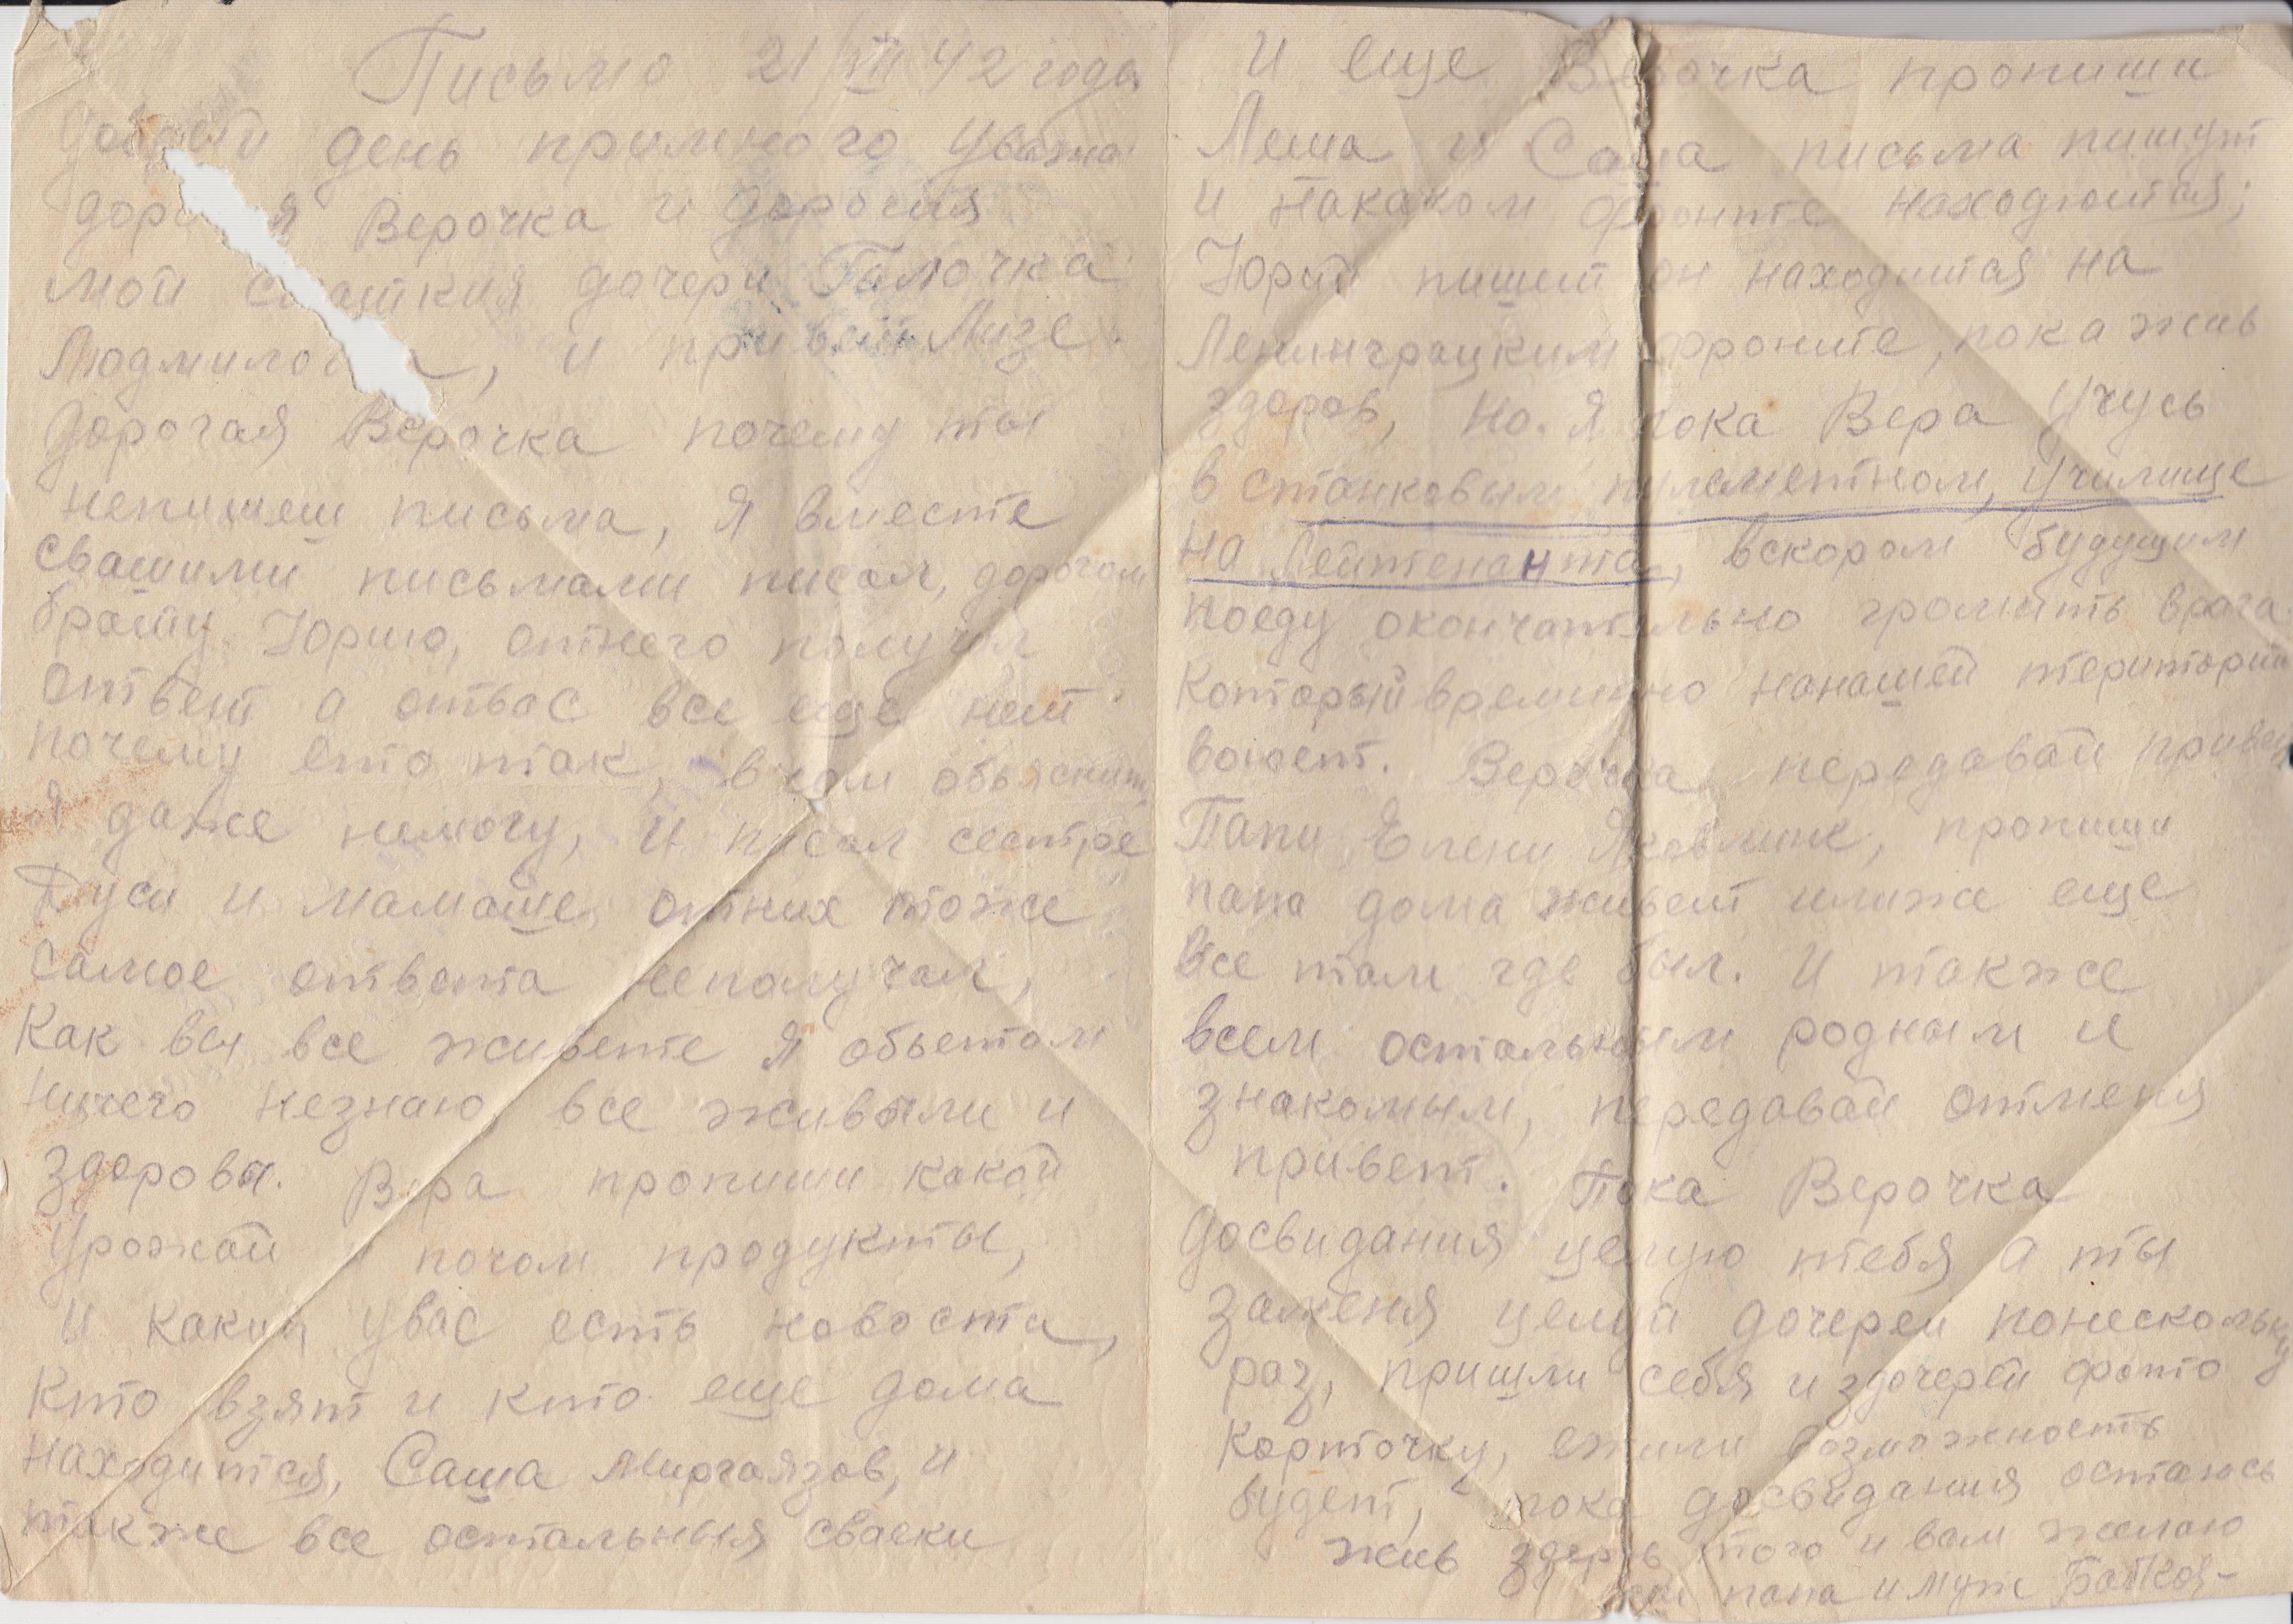 Письмо 21/VII 42 года
день примного уважа
Верочка и дорогия
мои дочери Галочка
и привет Лизе.
Дорогая Верочка почему ты
непишеш письма, я вместе
свашими письмами писал, дорогом
брату Юрию, отнего получил
ответ а отвас все еще нет
почему ето так, вчом обьяснит,
я даже немогу, и писал сестре
Дуси и мамаше, отних тоже
самое ответа неполучал,
Как вы все живете я обьетом
ничего незнаю все живыли и
здоровы. Вера пропиши какой
урожай и почом продукты,
и какии увас есть новости,
Кто взят и кто еще дома
находится, Саша Миргаязов, и
также все остальныя сваеки
И еще Верочка пропиши
Леша и Саша письма пишут
и накаком фронте находются;
Юрий пишет он находится на
Ленинграцким фронте, пока жив
здоров, но. Я пока Вера учусь
в станковым пулеметном, училище
на Лейтенанта, вскором будущим
поеду окончательно громить врага
Который временно нанашей територии
воюет. Верочка передавай привет
Папи, Елени Яковлине, пропиши
папа дома живет илиже еще
все там где был. И также
всем остальным родным и
знакомым, передавай отменя
привет. Пока Верочка
Досвидания целую тебя а ты
заменя целуй дочереи понескольку
раз, пришли себя и здочерей фото
Карточку, ежили возможность
будет, пока досвидания остаюсь
жив здоров того и вам желаю
папа и муж